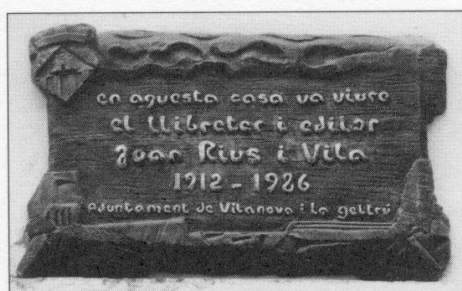 en aquesta casa va viure
el llibreter i editor
Joan Rius i Vila
1912 - 1986
Ajuntament de Vilanova i la geltrú